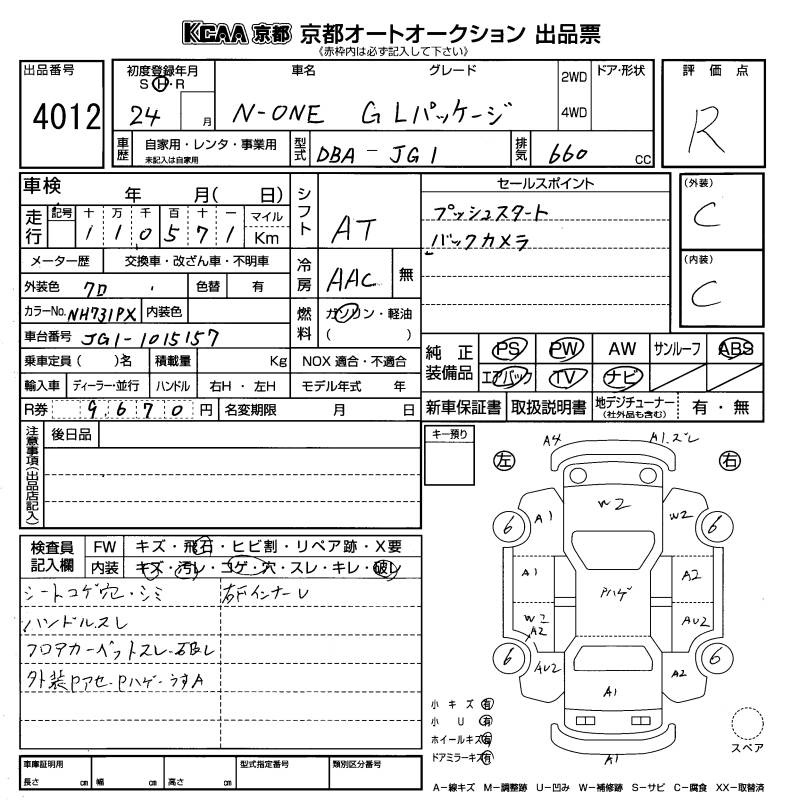 KCAA 京都 京都オートオークション 出品票
《赤枠内は必ず記入して下さい》
出品番号 初度登録年月 車名 グレード 2WD ドア・形状 評価点
S H・R
4012 24 月 N-ONE G Lパッケージ 4WD R
車歴 自家用・レンタ・事業用 型式 DBA-JG1 排気 660 CC
未記入は自家用
車検 年 月( 日) シフト AT セールスポイント (外装)
プッシュスタート C
走行 記号 十 万 千 百 十 一 マイル
1 1 0 5 7 1 Km バックカメラ
メーター歴 交換車・改ざん車・不明車 冷房 AAC 無 (内装)
外装色 クロ 色替 有 C
カラーNo. NH731PX 内装色 燃料 ガソリン・軽油
車台番号 JG1-1015157 ( )
乗車定員( )名 積載量 Kg NOX 適合・不適合 純正装備品 PS PW AW サンルーフ ABS
輸入車 ディーラー・並行 ハンドル 右H・左H モデル年式 年 エアバック TV ナビ
R券 9670円 名変期限 月 日 新車保証書 取扱説明書 地デジチューナー(社外品も含む) 有・無
注意事項(出品店記入) 後日品 キー預り
A4 A1.ズレ
左 右
W2
6 A1 W2 6
検査員記入欄 FW キズ・飛石・ヒビ割・リペア跡・X要
内装 キズ・汚レ・コゲ・穴・スレ・キレ・破レ
A1 Pハゲ A2
シートコゲ穴・シミ
ハンドルスレ
W2 A2 AU2
フロアカーペットスレ・破レ
6 AU2 A2 6
外装Pアセ・Pハゲ・うすA
A1
小キズ 有
小U 有
ホイールキズ 有
ドアミラーキズ 有
スペア
A1
車庫証明用 型式指定番号 類別区分番号
長さ cm 幅 cm 高さ cm
A-線キズ M-調整跡 U-凹み W-補修跡 S-サビ C-腐食 XX-取替済